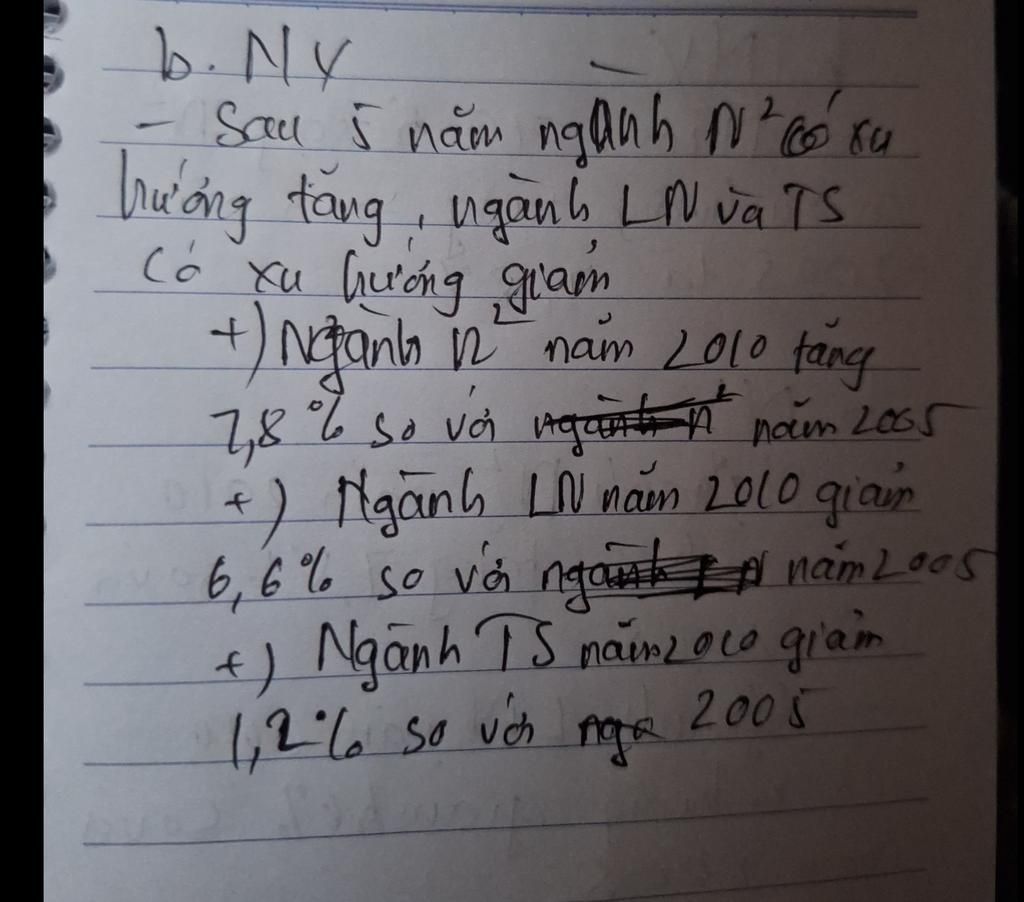 b. NX
- Sau 5 năm ngành N² có xu
hướng tăng, ngành LN và TS
có xu hướng giảm
+) Ngành n² năm 2010 tăng
7,8% so với ngành n² năm 2005
+) Ngành LN năm 2010 giảm
6,6% so với ngành LN năm 2005
+) Ngành TS năm 2010 giảm
1,2% so với nga 2005